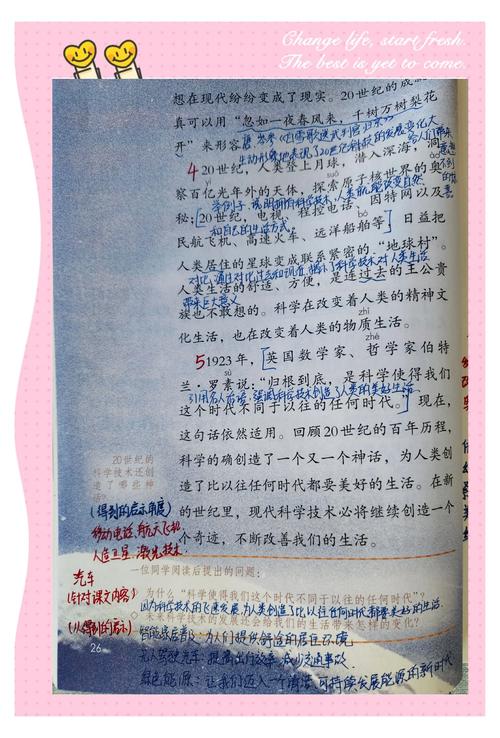 Change life, start fresh.
The best is yet to come.
想在现代纷纷变成了现实。20世纪的成就
真可以用“忽如一夜春风来，千树万树梨花
开”来形容。
生动形象地表现了20世纪科技的发展变化大
4 20世纪，人类登上月球，潜入深海，洞
察百亿光年外的天体，探索原子核世界的奥
秘；20世纪，电视、程控电话、因特网以及
和自己的生活方式。
民航飞机、高速火车、远洋船舶等，日益把
人类居住的星球变成联系紧密的“地球村”。
人类生活的舒适、方便，是连过去的王公贵
带来巨大意义
族也不敢想的。科学在改变着人类的精神文
化生活，也在改变着人类的物质生活。
5 1923年，英国数学家、哲学家伯特
兰·罗素说：“归根到底，是科学使得我们
引用名人名言，强调科学技术创造了人类的美好生活
这个时代不同于以往的任何时代。”现在，
这句话依然适用。回顾20世纪的百年历程，
科学的确创造了一个又一个神话，为人类创
造了比以往任何时代都要美好的生活。在新
的世纪里，现代科学技术必将继续创造一个
个奇迹，不断改善我们的生活。
20世纪的
科学技术还创
造了哪些神
话？
(得到的启示角度)
移动电话、航天飞机
人造卫星、激光技术
汽车
一位同学阅读后提出的问题：
(针对课文内容)
为什么“科学使得我们这个时代不同于以往的任何时代”？
因为科学技术的飞速发展，为人类创造了比以往任何时代都要美好的生活。
未来科学技术的发展还会给我们的生活带来怎样的变化？
(从得到的启示)
智能家居普及：为人们提供舒适的居住环境
无人驾驶汽车：提高出行效率，减少交通事故
绿色能源：让我们迈入一个清洁、可持续发展能源的新时代
26